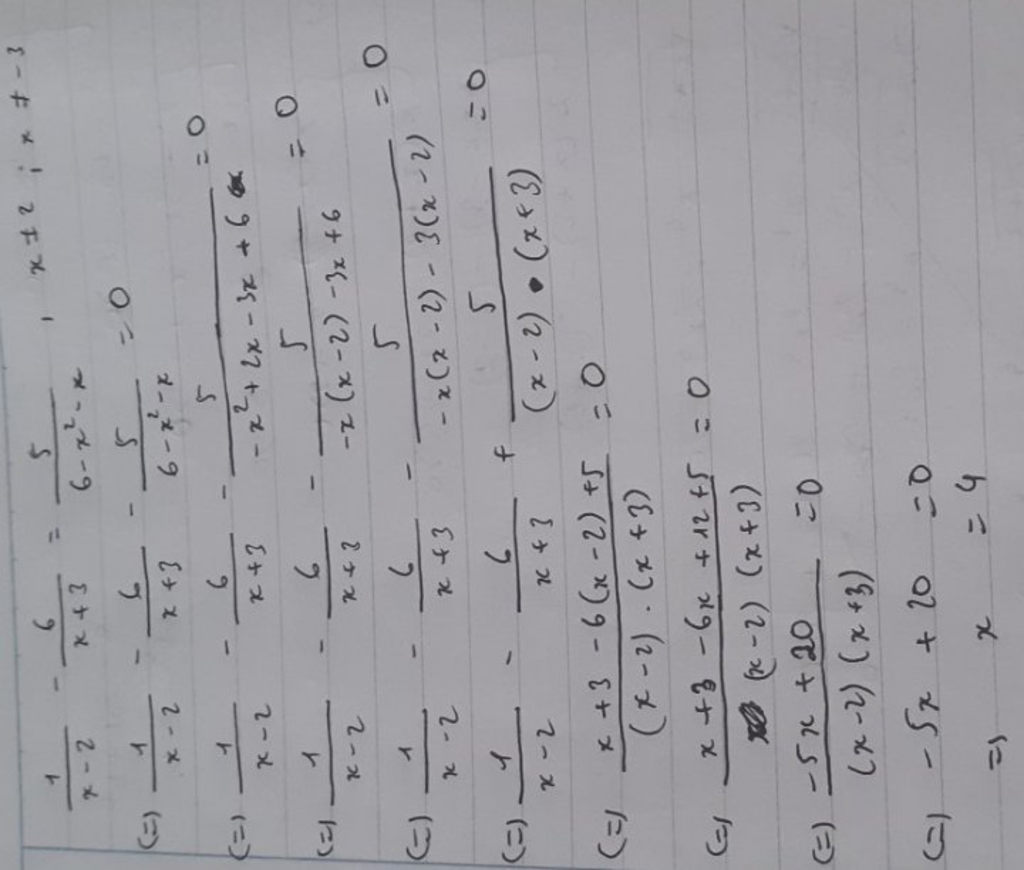 1/(x-2) - 6/(x+3) = 5/(6-x²-x) , x ≠ 2 ; x ≠ -3
(=) 1/(x-2) - 6/(x+3) - 5/(6-x²-x) = 0
(=) 1/(x-2) - 6/(x+3) - 5/(-x²+2x-3x+6) = 0
(=) 1/(x-2) - 6/(x+3) - 5/(-x(x-2)-3x+6) = 0
(=) 1/(x-2) - 6/(x+3) - 5/(-x(x-2)-3(x-2)) = 0
(=) 1/(x-2) - 6/(x+3) + 5/((x-2)·(x+3)) = 0
(=) (x+3-6(x-2)+5)/((x-2).(x+3)) = 0
(=) (x+3-6x+12+5)/((x-2)(x+3)) = 0
(=) (-5x+20)/((x-2)(x+3)) = 0
(=) -5x + 20 = 0
=) x = 4